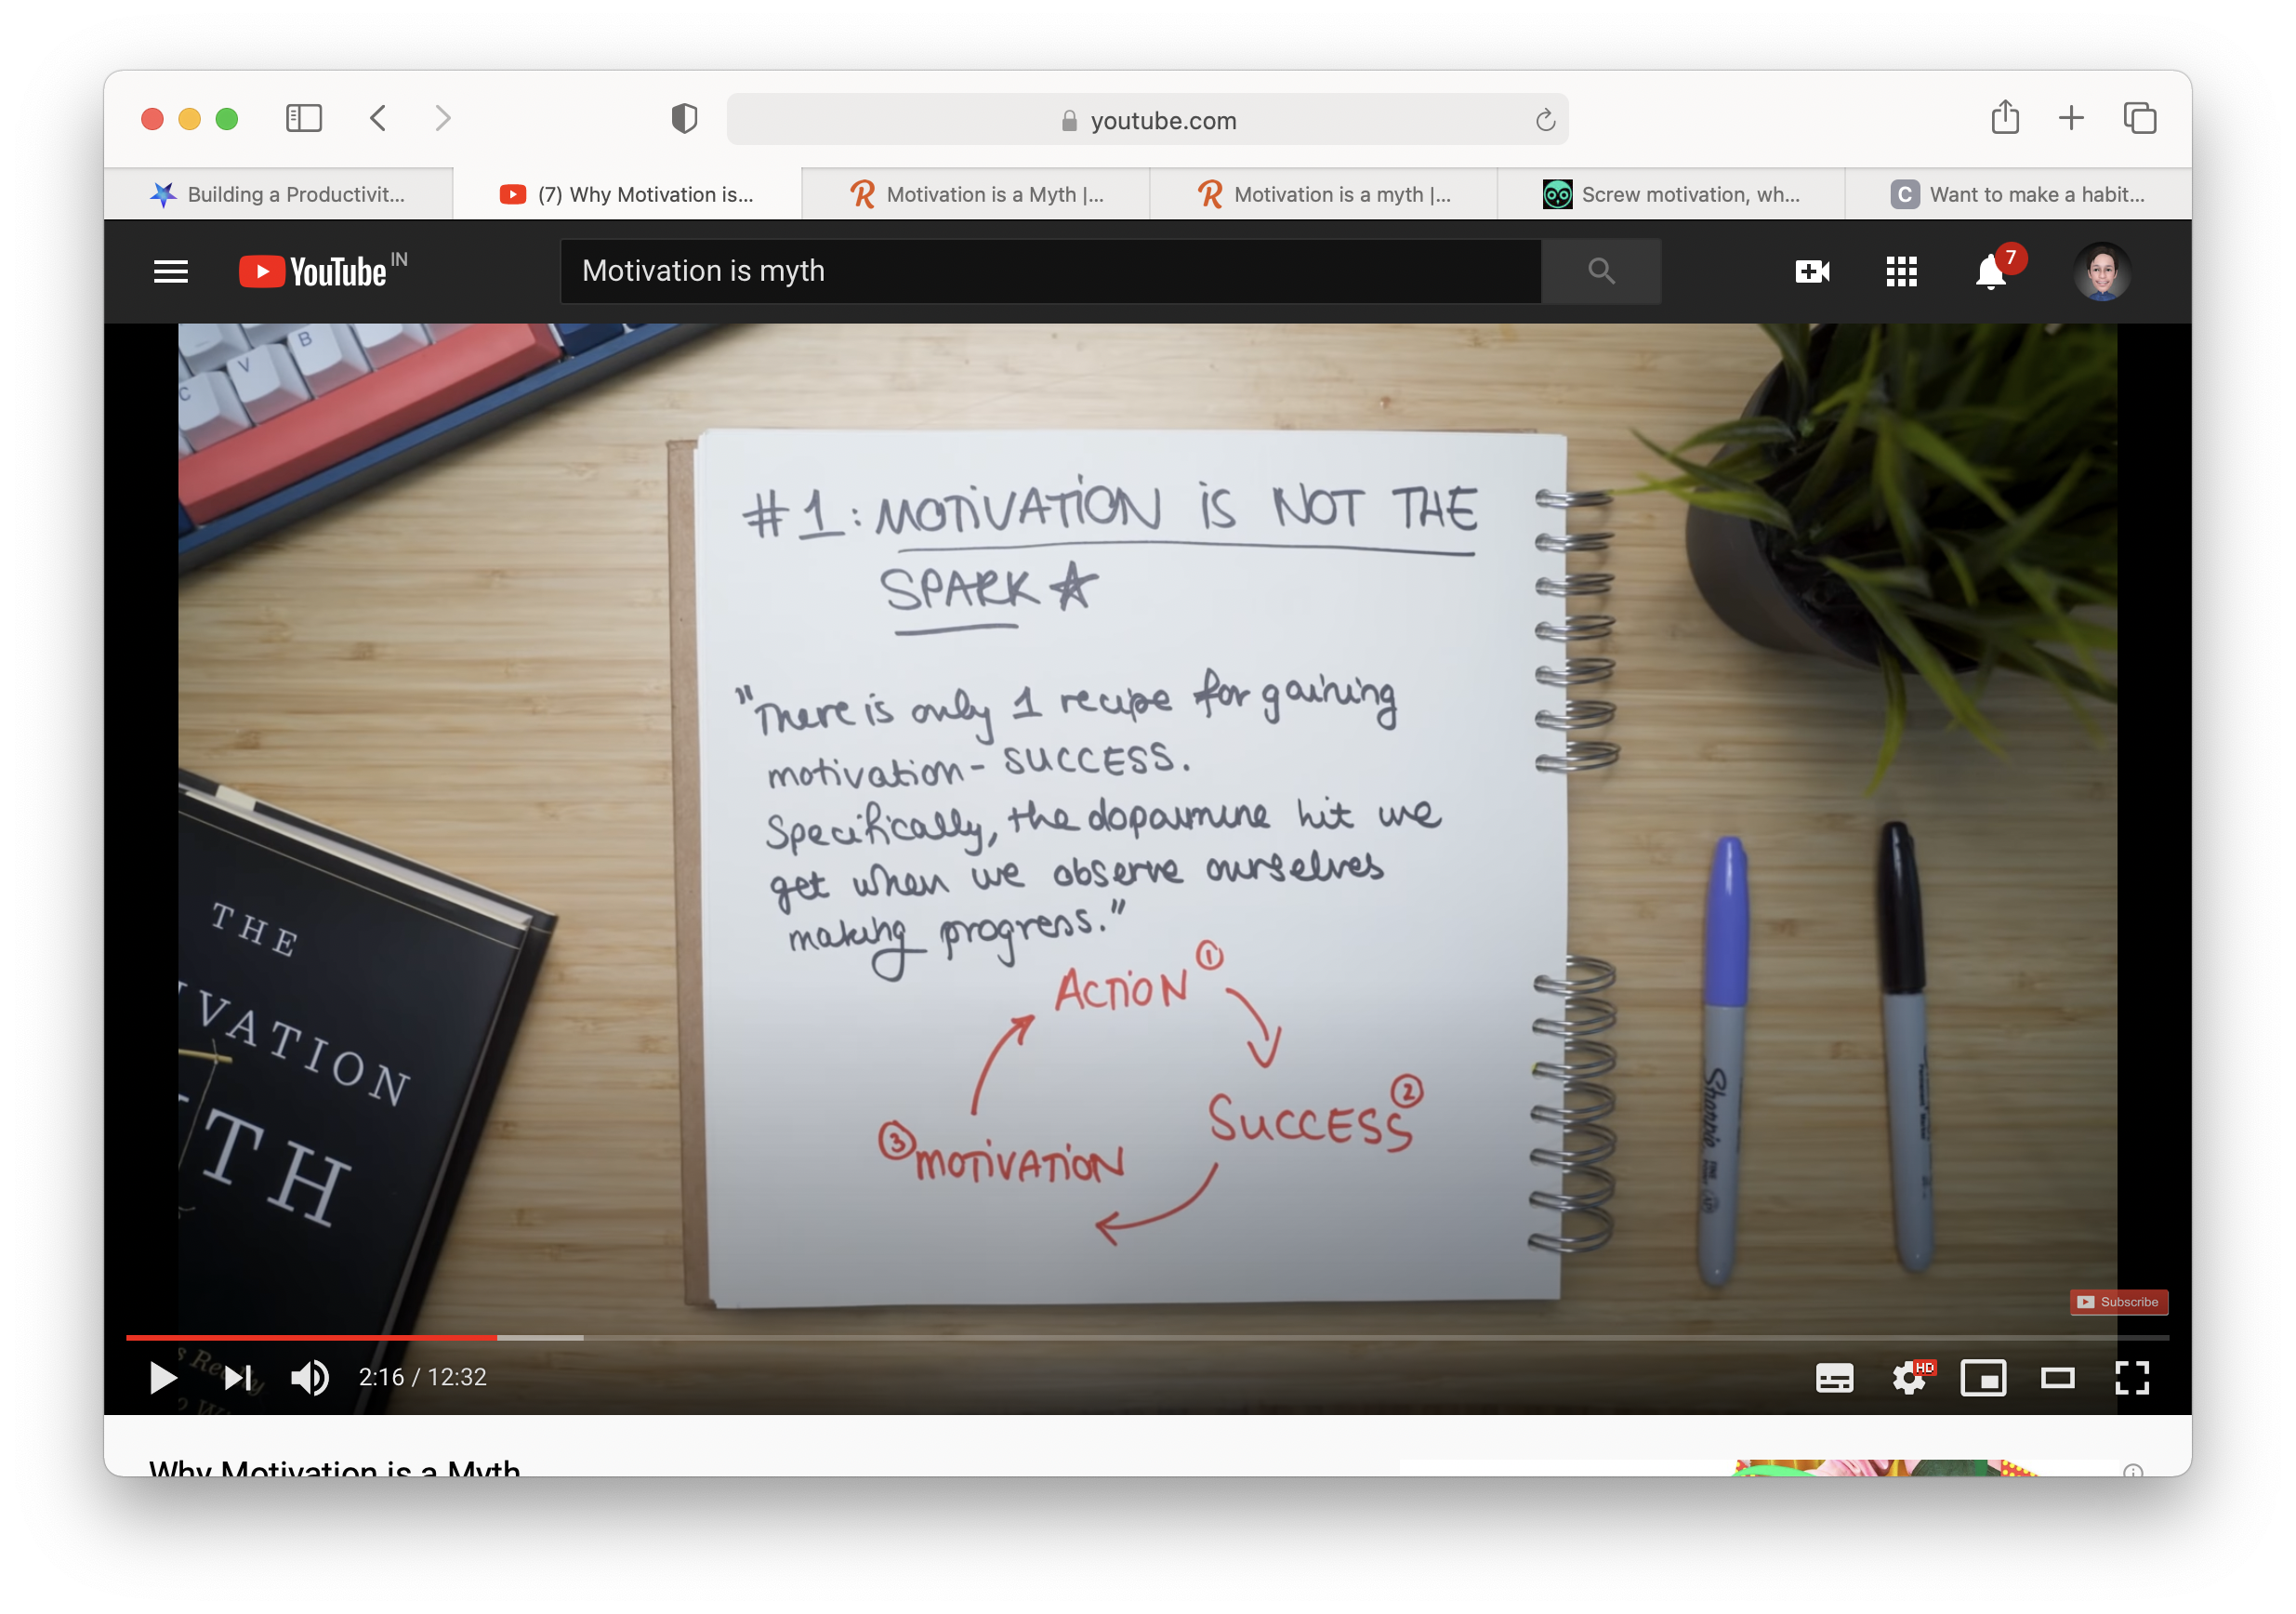 youtube.com
Building a Productivit...
(7) Why Motivation is...
Motivation is a Myth |...
Motivation is a myth |...
Screw motivation, wh...
C Want to make a habit...
YouTube IN
Motivation is myth
7
B
V
C
#1: MOTIVATION IS NOT THE
SPARK
"There is only 1 recipe for gaining
motivation - SUCCESS.
Specifically, the dopamine hit we
get when we observe ourselves
making progress."
ACTION 1
SUCCESS 2
3 MOTIVATION
THE
IVATION
YTH
Sharpie
FINE
Subscribe
2:16 / 12:32
HD
Why Motivation is a Myth